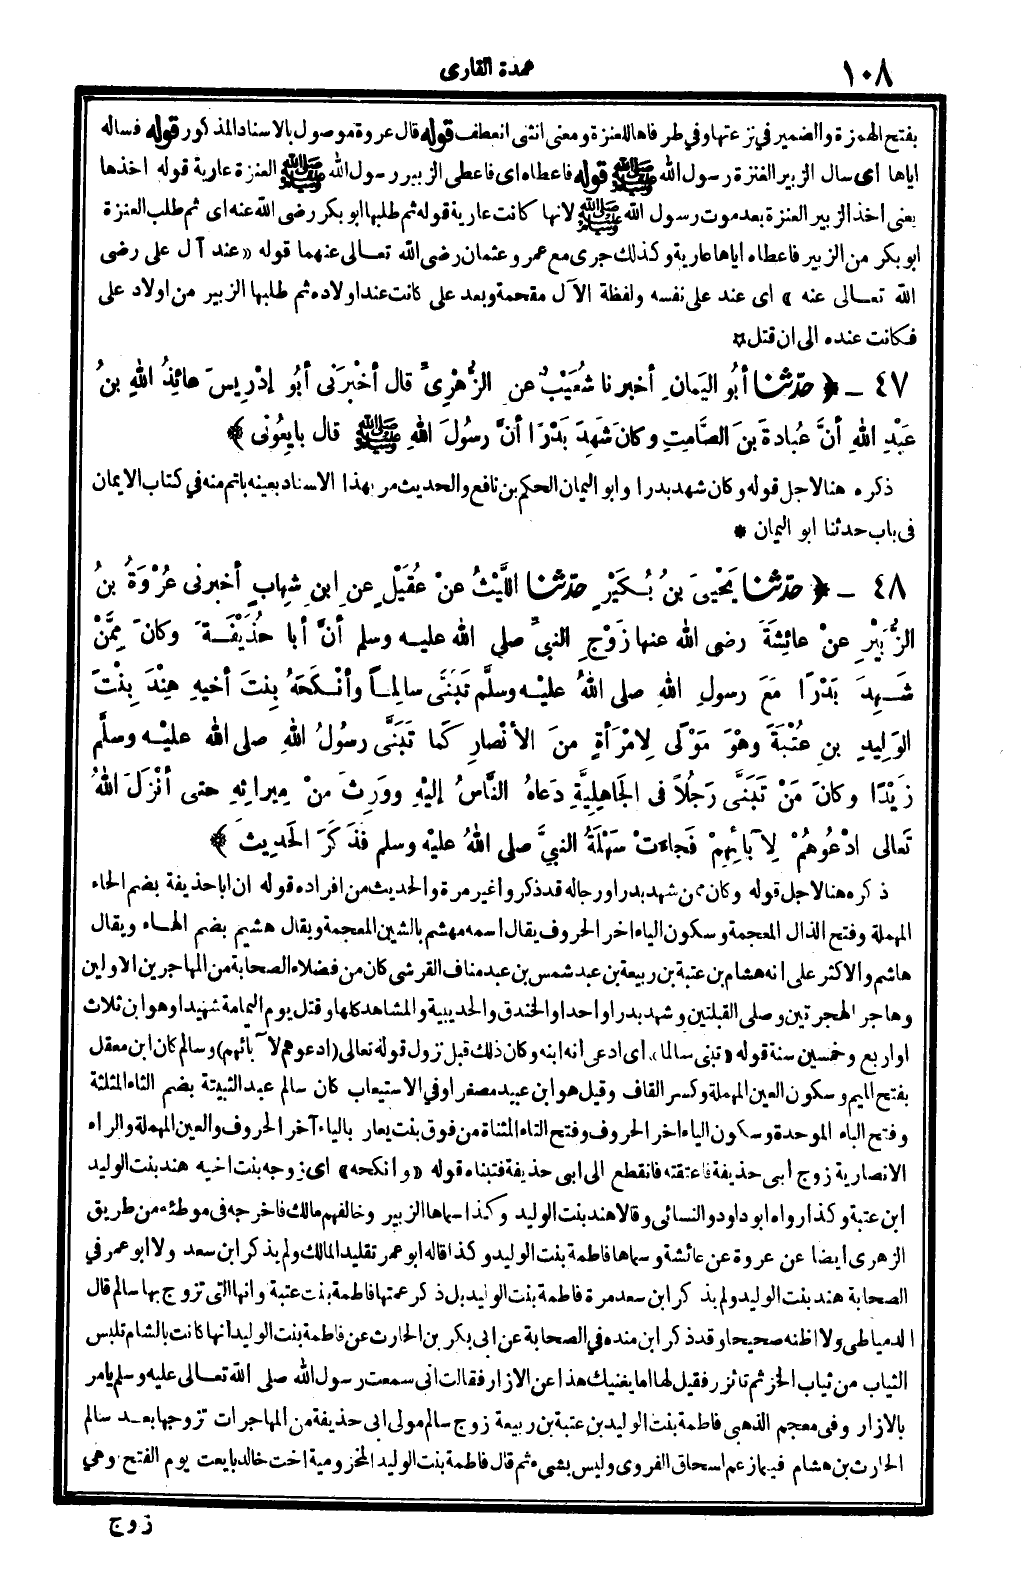 ١٠٨
عمدة القارى
بفتح الهمزة والضمير في نزعتها وفي طرفاها للعنزة ومعنى انثنى انعطف قوله قال عروة موصول بالاسناد المذكور قوله فساله
اياها أى سال الزبير العنزة رسول الله ﷺ قوله فاعطاه اى فاعطى الزبير رسول الله ﷺ العنزة عارية قوله اخذها
يعنى اخذ الزبير العنزة بعد موت رسول الله ﷺ لانها كانت عارية قوله ثم طلبها ابو بكر رضى الله عنه اى ثم طلب العنزة
ابو بكر من الزبير فاعطاه اياها عارية وكذلك جرى مع عمر وعثمان رضى الله تعالى عنهما قوله «عند آل على رضى
الله تعالى عنه» اى عند على نفسه ولفظة الآل مقحمة وبعد على كانت عند اولاده ثم طلبها الزبير من اولاد على
فكانت عنده الى ان قتل *
٤٧ ـ ﴿ حدّثنا أبُو اليَمانِ أخبرنا شُعَيْبٌ عنِ الزُّهْرِىِّ قال أخْبَرَنى أبُو إدْرِيسَ عائِذُ اللهِ بنُ
عَبْدِ اللهِ أنَّ عُبادةَ بنَ الصَّامِتِ وكانَ شَهِدَ بَدْرًا أنَّ رسُولَ اللهِ ﷺ قال بايِعُونى ﴾ *
ذكره هنا لاجل قوله وكان شهد بدرا وابو اليمان الحكم بن نافع والحديث مر بهذا الاسناد بعينه باتم منه في كتاب الايمان
فى باب حدثنا ابو اليمان *
٤٨ ـ ﴿ حدّثنا يَحْيىَ بنُ بُكَيْرٍ حدّثنا اللَّيْثُ عنْ عُقَيْلٍ عنِ ابنِ شِهابٍ أخبرنى عُرْوَةُ بنُ
الزُّبَيْرِ عنْ عائِشَةَ رضى الله عنها زَوْجِ النبيِّ صلى الله عليه وسلم أنَّ أبا حُذَيْفَةَ وكانَ مِمَّنْ
شَهِدَ بَدْرًا مَعَ رسولِ اللهِ صلى اللهُ عليْه وسلَّم تَبَنَّى سالِماً وأنْكَحَهُ بِنْتَ أخيهِ هِنْدَ بِنْتَ
الوَلِيدِ بنِ عُتْبَةَ وهْوَ مَوْلًى لِامْرَأةٍ منَ الأنْصارِ كَما تَبَنَّى رسُولُ اللهِ صلى الله عليْه وسلَّم
زَيْدًا وكانَ مَنْ تَبَنَّى رَجُلاً فى الجَاهِلِيَّةِ دَعاهُ النَّاسُ إليْهِ ووَرِثَ مِنْ مِيراثِهِ حتى أنْزَلَ اللهُ
تَعالى ادْعُوهُمْ لِآبائِهِمْ فَجاءَتْ سَهْلَةُ النبيَّ صلى اللهُ عليْه وسلم فذَكَرَ الحَدِيثَ ﴾ *
ذكره هنا لاجل قوله وكان ممن شهد بدرا ورجاله قد ذكروا غير مرة والحديث من افراده قوله ان ابا حذيفة بضم الحاء
المهملة وفتح الذال المعجمة وسكون الياء اخر الحروف يقال اسمه مهشم بالشين المعجمة ويقال هشيم بضم الهاء ويقال
هاشم والاكثر على انه هشام بن عتبة بن ربيعة بن عبد شمس بن عبد مناف القرشى كان من فضلاء الصحابة من المهاجرين الاولين
وهاجر الهجرتين وصلى القبلتين وشهد بدرا واحدا والخندق والحديبية والمشاهد كلها وقتل يوم اليمامة شهيدا وهو ابن ثلاث
او اربع وخمسين سنة قوله «تبنى سالما» اى ادعى انه ابنه وكان ذلك قبل نزول قوله تعالى (ادعوهم لآبائهم) وسالم كان ابن معقل
بفتح الميم وسكون العين المهملة وكسر القاف وقيل هو ابن عبيد مصغرا وفي الاستيعاب كان سالم عبد الثبيتة بضم الثاء المثلثة
وفتح الباء الموحدة وسكون الياء اخر الحروف وفتح التاء المثناة من فوق بنت يعار بالياء آخر الحروف والعين المهملة والراء
الانصارية زوج أبى حذيفة فاعتقته فانقطع الى ابى حذيفة فتبناه قوله «وانكحه» اى زوجه بنت اخيه هند بنت الوليد
ابن عتبة وكذا رواه ابو داود والنسائى وقالا هند بنت الوليد وكذا سماها الزبير وخالفهم مالك فاخرجه فى موطئه من طريق
الزهرى ايضا عن عروة عن عائشة وسماها فاطمة بنت الوليد وكذا قاله ابو عمر تقليد المالك ولم يذكر ابن سعد ولا ابو عمر في
الصحابة هند بنت الوليد ولم يذكر ابن سعد مرة فاطمة بنت الوليد بل ذكر عمتها فاطمة بنت عتبة وانها التى تزوج بها سالم قال
الدمياطى ولا اظنه صحيحا وقد ذكر ابن منده في الصحابة عن ابى بكر بن الحارث عن فاطمة بنت الوليد أنها كانت بالشام تلبس
الثياب من ثياب الخز ثم تاتزر فقيل لها اما يغنيك هذا عن الازار فقالت انى سمعت رسول الله صلى الله تعالى عليه وسلم يامر
بالازار وفى معجم الذهبى فاطمة بنت الوليد بن عتبة بن ربيعة زوج سالم مولى ابى حذيفة من المهاجرات تزوجها بعد سالم
الحارث بن هشام فيما زعم اسحاق الفروى وليس بشىء ثم قال فاطمة بنت الوليد المخزومية اخت خالد بايعت يوم الفتح وهي
زوج